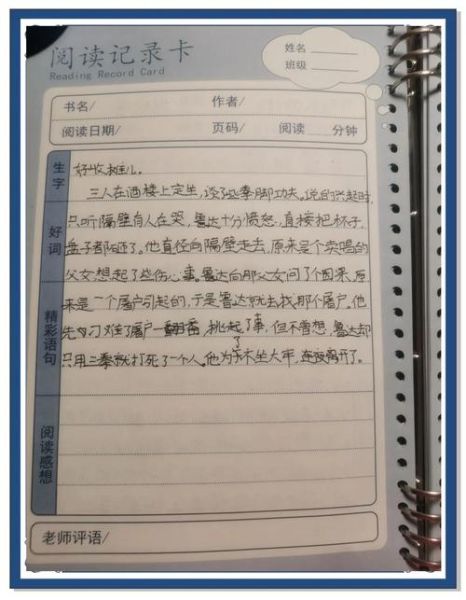 阅读记录卡
Reading Record Card
姓名
班级
书名/ 作者/
阅读日期/ 页码/ 阅读 分钟
生字
好词
精彩语句
阅读感想
好收
三人在酒楼上定坐,谈了些拳脚功夫。说的兴起时,
只听隔壁有人在哭,鲁达十分愤怒,直接把杯子,
盘子都砸了。他直径向隔壁走去,原来是个卖唱的
父女想起了些伤心事。鲁达向那父女问了个因果,原
来是一个屠户引起的,于是鲁达就去找那个屠户。他
先刁难了屠户一翻,挑起了事,但不曾想,鲁达却
只用三拳就打死了一个人。他为了不坐大牢,连夜离开了。
老师评语/